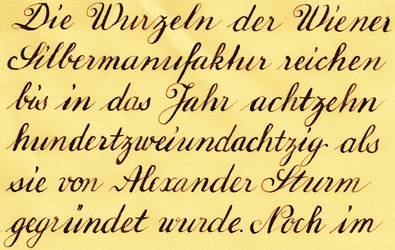 Die Wurzeln der Wiener
Silbermanufaktur reichen
bis in das Jahr achtzehn
hundertzweiundachtzig als
sie von Alexander Sturm
gegründet wurde. Noch im